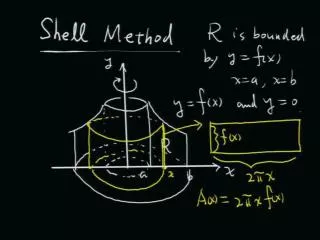 Shell Method
R is bounded
by y = f(x)
x=a, x=b
and y=0
y
y=f(x)
R
f(x)
a
x
b
x
2πx
A(x)=2πx f(x)